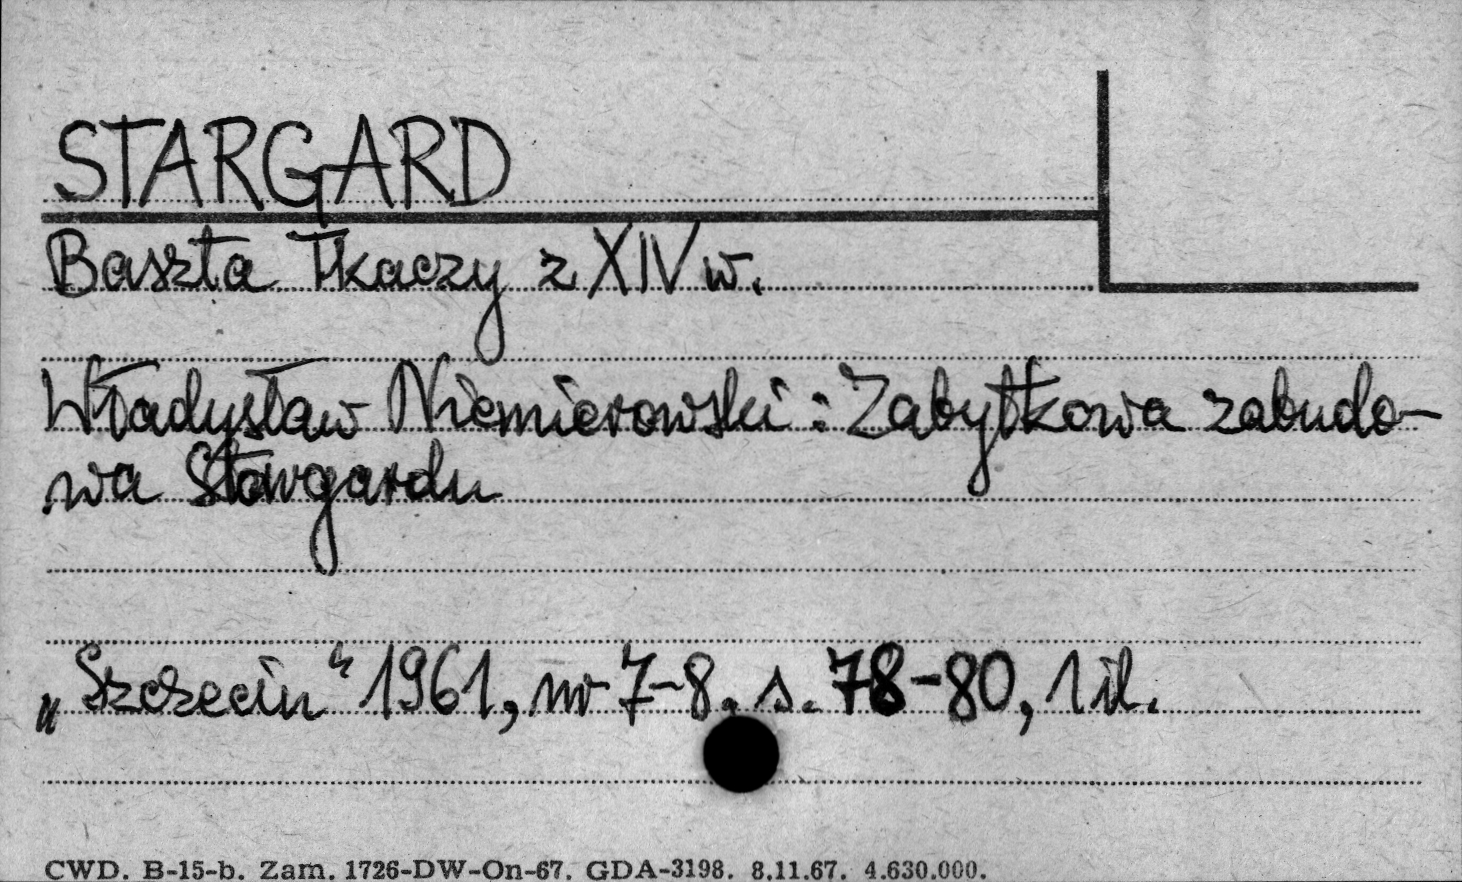 STARGARD
Baszta Tkaczy z XIV w.
Władysław Niemierowski: Zabytkowa zabudo-
wa Stargardu
„Szczecin" 1961, nr 7-8, s. 78-80, 1 il.
CWD. B-15-b. Zam. 1726-DW-On-67. GDA-3198. 8.11.67. 4.630.000.